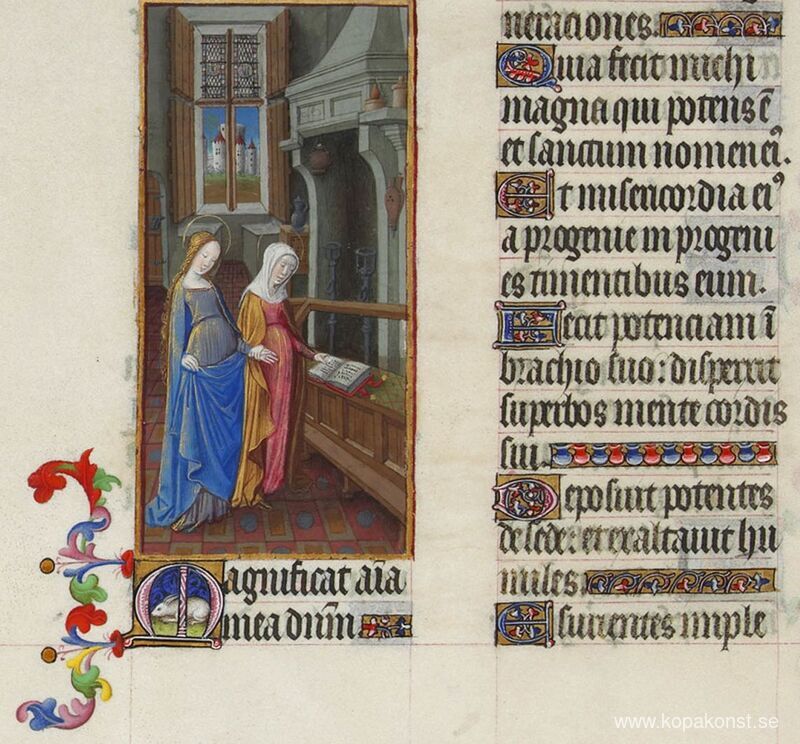 agnificat aīa
mea dnm̄
neraciones.
Quia fecit michi
magna qui potens ē
et sanctum nomen ei⁹.
Et misericordia ei⁹
a progenie in progeni
es timentibus eum.
Fecit potenciam ī
brachio suo: dispersit
superbos mente cordis
sui.
Deposuit potentes
de sede: et exaltavit hu
miles.
Esurientes imple
www.kopakonst.se